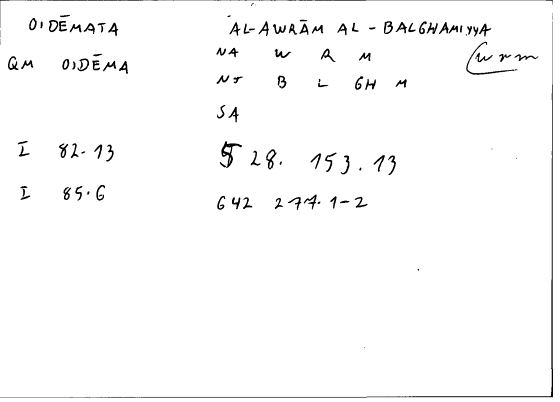 OIDĒMATA AL-AWRĀM AL-BALGHAMIYYA
QM OIDĒMA NA W R M (wrm
NJ B L GH M
SA
I 82.13 528. 153.13
I 85.6 642 277.1-2